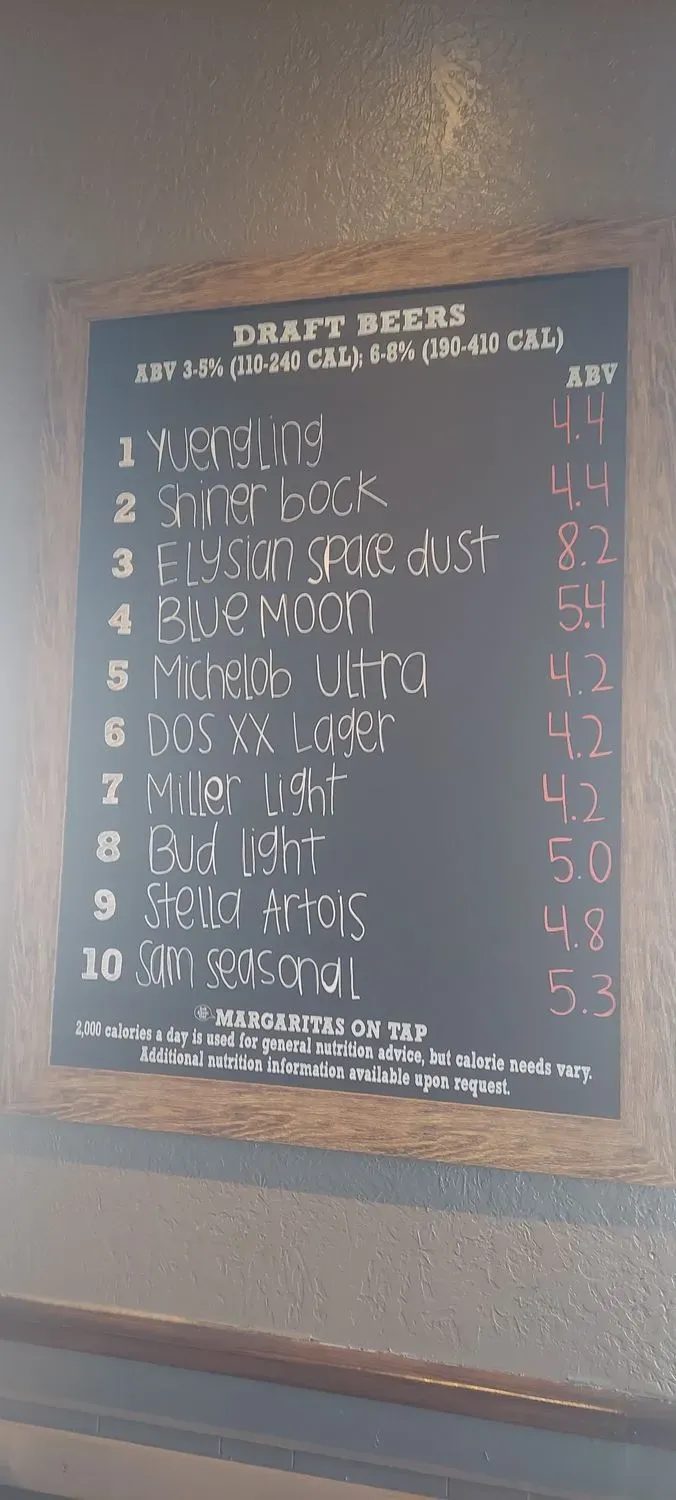 DRAFT BEERS
ABV 3-5% (110-240 CAL); 6-8% (190-410 CAL)
ABV
1 Yuengling 4.4
2 Shiner bock 4.4
3 Elysian space dust 8.2
4 BLUE MOON 5.4
5 Michelob Ultra 4.2
6 DOS XX Lager 4.2
7 Miller Light 4.2
8 Bud light 5.0
9 Stella Artois 4.8
10 Sam seasonal 5.3
MARGARITAS ON TAP
2,000 calories a day is used for general nutrition advice, but calorie needs vary.
Additional nutrition information available upon request.